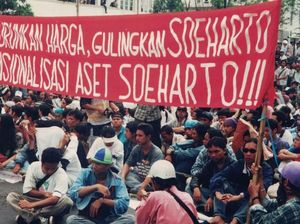 RUNKAN HARGA, GULINGKAN SOEHARTO
SIONALISASI ASET SOEHARTO!!!